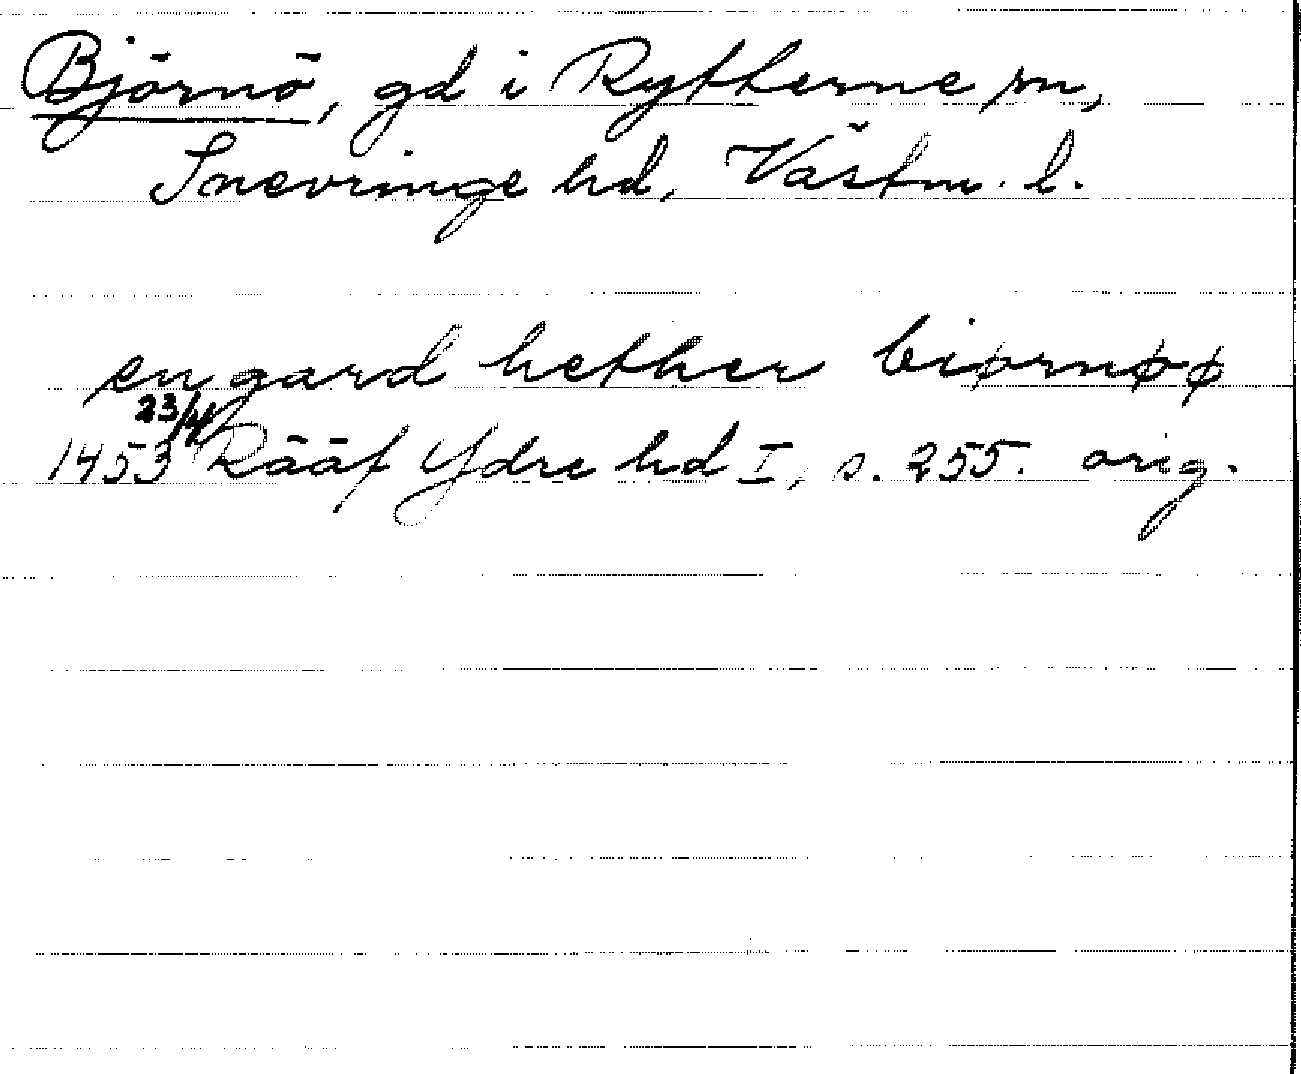 Björnö, gd i Rytterne sn,
Snevringe hd, Västm. l.
en gard hether biørnøø
23/4
1453 Rääf Ydre hd I, s. 255. orig.